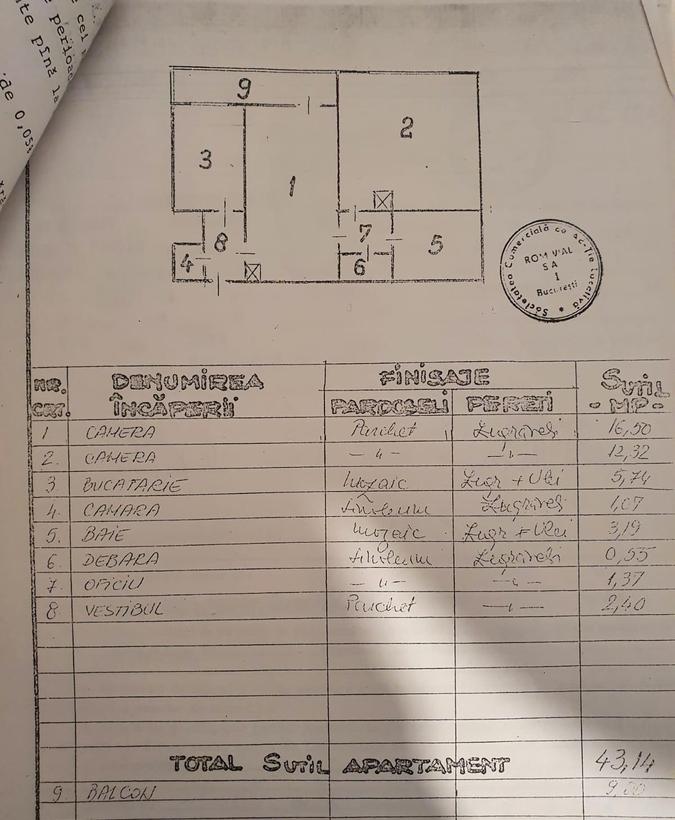 cei
perioa
te pînă la
de 0,05%
9
2
3
1
7
8
5
4
6
Societatea Comercială cu acție Lucativă
ROMVIAL
SA
1
București
NR. CRT.
DENUMIREA ÎNCĂPERII
FINISAJE
PARDOSELI
PERETI
SUTIL - MP -
1 CAMERA Parchet Zugrăveli 16,50
2. CAMERA — " — — " — 12,32
3. BUCATARIE Mozaic Zugr + Ulei 5,74
4. CAMARA Linoleum Zugrăveli 1,07
5. BAIE Mozaic Zugr + Ulei 3,19
6. DEBARA Linoleum Zugrăveli 0,55
7. OFICIU — " — — " — 1,37
8 VESTIBUL Parchet — " — 2,40
TOTAL SUTIL APARTAMENT 43,14
9 BALCON